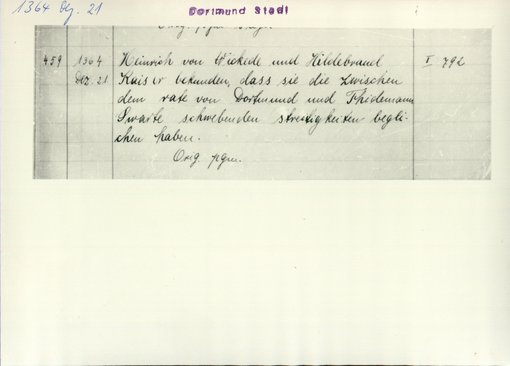 1364 Dez. 21
Dortmund Stadt
Orig. pgm
459 1364 Heinrich von Wickede und Hildebrand I 792
Dez. 21 Keiser bekunden, dass sie die zwischen
dem rate von Dortmund und Thidemann
Swarte schwebenden streitigkeiten begli-
chen haben.
Orig. pgm.